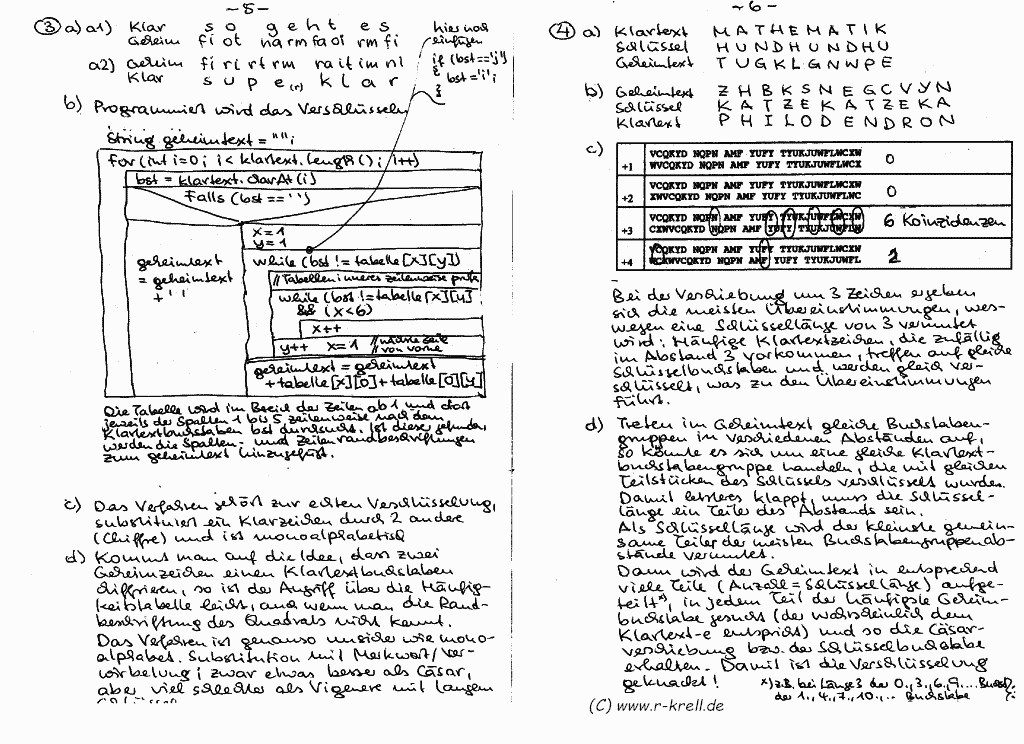 ~5~
③ a) a1) Klar s o g e h t e s
Geheim fi ot na rm fa oi rm fi
a2) Geheim fi ri rt rm ra it im nl
Klar s u p e (r) k l a r
hier noch
einfügen
if (bst=='j')
{
bst='i';
}
b) Programmiert wird das Verschlüsseln
String geheimtext = "";
for (int i=0; i< klartext.length(); i++)
bst = klartext.charAt(i)
falls (bst==' ')
x=1
y=1
geheimtext
= geheimtext
+ ' '
while (bst != tabelle[x][y])
// Tabelleninneres zeilenweise prüfen
while (bst != tabelle[x][y]
&& (x<6)
x++
y++ x=1 // nächste Zeile
// von vorne
geheimtext = geheimtext
+ tabelle[x][0] + tabelle[0][y]
Die Tabelle wird im Bereich der Zeilen ab 1 und dort
jeweils der Spalten 1 bis 5 zeilenweise nach dem
Klartextbuchstaben bst durchsucht. Ist dieser gefunden,
werden die Spalten- und Zeilenrandbeschriftungen
zum geheimtext hinzugefügt.
c) Das Verfahren gehört zur echten Verschlüsselung,
substituiert ein Klarzeichen durch 2 andere
(Chiffre) und ist monoalphabetisch
d) Kommt man auf die Idee, dass zwei
Geheimzeichen einen Klartextbuchstaben
chiffrieren, so ist der Angriff über die Häufig-
keitstabelle leicht, auch wenn man die Rand-
beschriftung des Quadrats nicht kennt.
Das Verfahren ist genauso unsicher wie mono-
alphabet. Substitution mit Merkwort/Ver-
würbelung; zwar etwas besser als Cäsar,
aber viel schlechter als Vigenere mit langem
~6~
④ a) Klartext M A T H E M A T I K
Schlüssel H U N D H U N D H U
Geheimtext T U G K L G N W P E
b) Geheimtext Z H B K S N E G C V Y N
Schlüssel K A T Z E K A T Z E K A
Klartext P H I L O D E N D R O N
c)
VCQKYD NQPN AMF YUFY TYUKJUWFLWCXW
+1 WVCQKYD NQPN AMF YUFY TYUKJUWFLWCX 0
VCQKYD NQPN AMF YUFY TYUKJUWFLWCXW
+2 XWVCQKYD NQPN AMF YUFY TYUKJUWFLWC 0
VCQKYD NQPN AMF YUFY TYUKJUWFLWCXW
+3 CXWVCQKYD NQPN AMF YUFY TYUKJUWFLW 6 Koinzidenzen
VCQKYD NQPN AMF YUFY TYUKJUWFLWCXW
+4 WCXWVCQKYD NQPN AMF YUFY TYUKJUWFL
Bei der Verschiebung um 3 Zeichen ergeben
sich die meisten Übereinstimmungen, wes-
wegen eine Schlüssellänge von 3 vermutet
wird: Häufige Klartextzeichen, die zufällig
im Abstand 3 vorkommen, treffen auf gleiche
Schlüsselbuchstaben und werden gleich ver-
schlüsselt, was zu den Übereinstimmungen
führt.
d) Treten im Geheimtext gleiche Buchstaben-
gruppen in verschiedenen Abständen auf,
so könnte es sich um eine gleiche Klartext-
buchstabengruppe handeln, die mit gleichen
Teilstücken des Schlüssels verschlüsselt wurden.
Damit letzteres klappt, muss die Schlüssel-
länge ein Teiler des Abstands sein.
Als Schlüssellänge wird der kleinste gemein-
same Teiler der meisten Buchstabengruppenab-
stände vermutet.
Dann wird der Geheimtext in entsprechend
viele Teile (Anzahl = Schlüssellänge) aufge-
teilt*), in jedem Teil der häufigste Geheim-
buchstabe gesucht (der wahrscheinlich dem
Klartext-e entspricht) und so die Cäsar-
verschiebung bzw. der Schlüsselbuchstabe
erhalten. Damit ist die Verschlüsselung
geknackt!
*) z.B. bei Länge 3 der 0., 3., 6., 9., ... Buchst.,
der 1., 4., 7., 10., ... Buchstabe
(C) www.r-krell.de